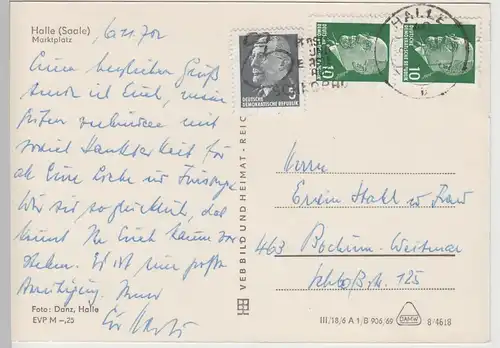 Halle (Saale)
Marktplatz
6.11.70
Einen herzlichen Gruß
sende ich Euch, meine
verbunden mit
soviel Dankbarkeit für
all Eure Liebe und Fürsorge
Wir sind so glücklich, das
könnt Ihr Euch kaum vor
stellen. Es ist eine große
Beruhigung.
Foto: Danz, Halle
EVP M –,25
VEB BILD UND HEIMAT · REIC
DEUTSCHE
DEMOKRATISCHE REPUBLIK
5
10
10
HALLE
Herrn
Erwin u. Frau
463 Bochum-Weitmar
Schloßstr. 125
III/18/6 A 1/B 906/69
DAMW
8/4618